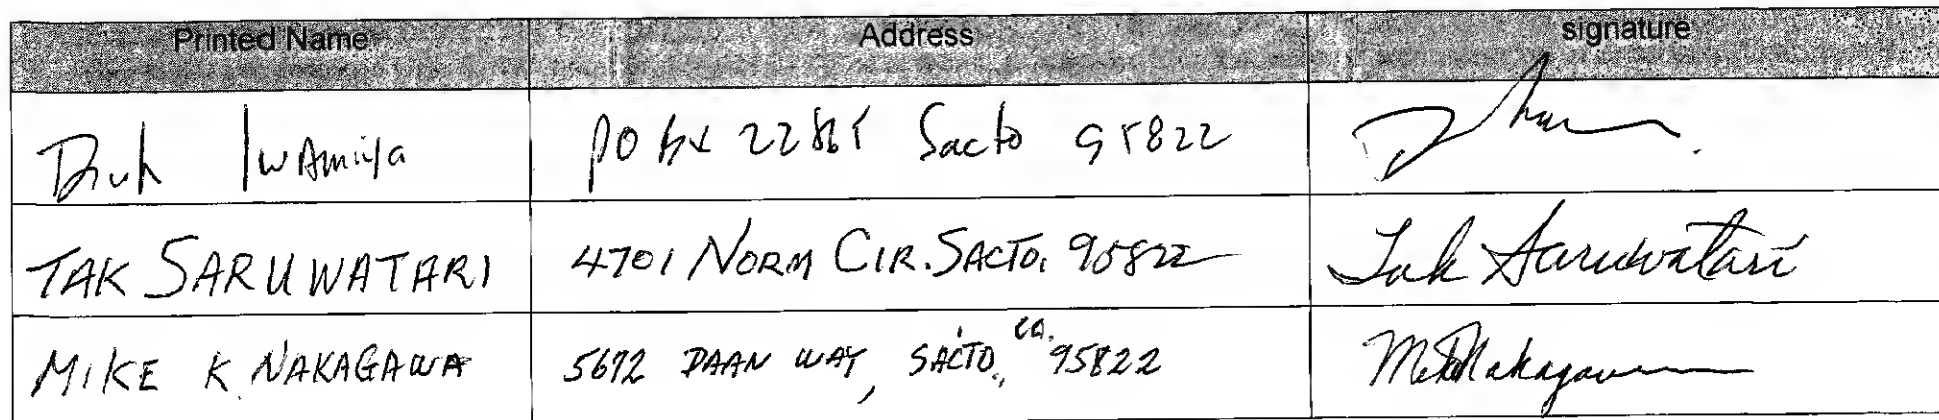 Printed Name Address signature
Iwamiya PO bx Sacto 95822
TAK SARUWATARI 4701 NORM CIR. SACTO. 95822 Tak Saruwatari
MIKE K NAKAGAWA 5672 DAAN WAY, SACTO., CA. 95822 Mike Nakagawa